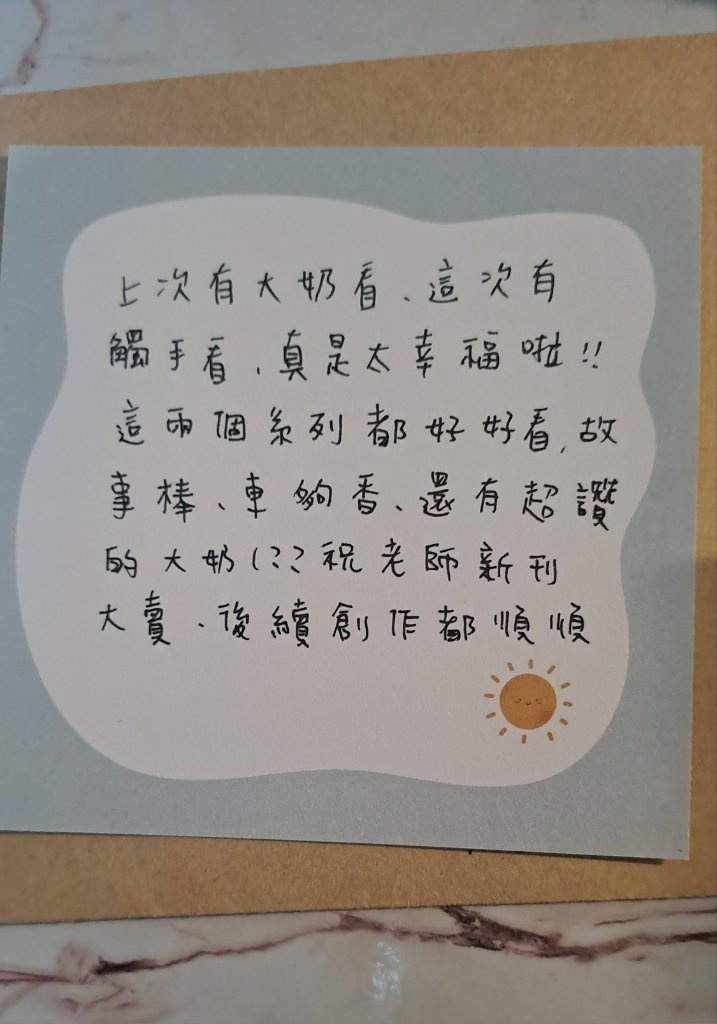 上次有大奶看、這次有
觸手看、真是太幸福啦!!
這兩個系列都好好看,故
事棒、車夠香、還有超讚
的大奶(??祝老師新刊
大賣、後續創作都順順